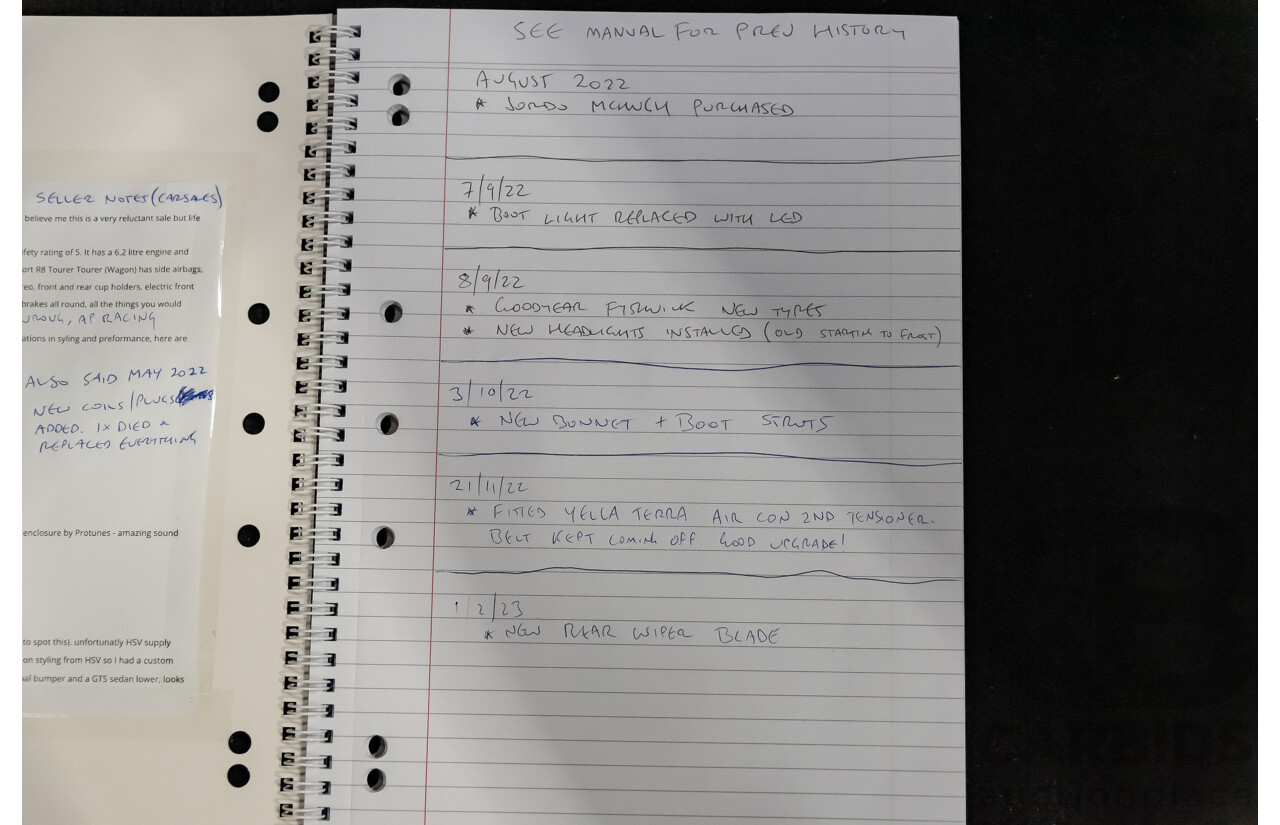 SELLER NOTES (CARSALES)
believe me this is a very reluctant sale but life
fety rating of 5. It has a 6.2 litre engine and
ort R8 Tourer Tourer (Wagon) has side airbags,
eo, front and rear cup holders, electric front
brakes all round, all the things you would
WRONG, AP RACING
ations in syling and preformance, here are
ALSO SAID MAY 2022
NEW COILS/PLUGS
ADDED. 1X DIED &
REPLACED EVERYTHING
enclosure by Protunes - amazing sound
to spot this). unfortunatly HSV supply
on styling from HSV so I had a custom
al bumper and a GTS sedan lower, looks
SEE MANUAL FOR PREV HISTORY
AUGUST 2022
* JORDO MCHUGH PURCHASED
7/9/22
* BOOT LIGHT REPLACED WITH LED
8/9/22
* GOODYEAR NEW TYRES
* NEW HEADLIGHTS INSTALLED (OLD STARTIN TO FROST)
3/10/22
* NEW BONNET + BOOT STRUTS
21/11/22
* FITTED YELLA TERRA AIR CON 2ND TENSIONER.
BELT KEPT COMING OFF. GOOD UPGRADE!
1/2/23
* NEW REAR WIPER BLADE
CARBIDS